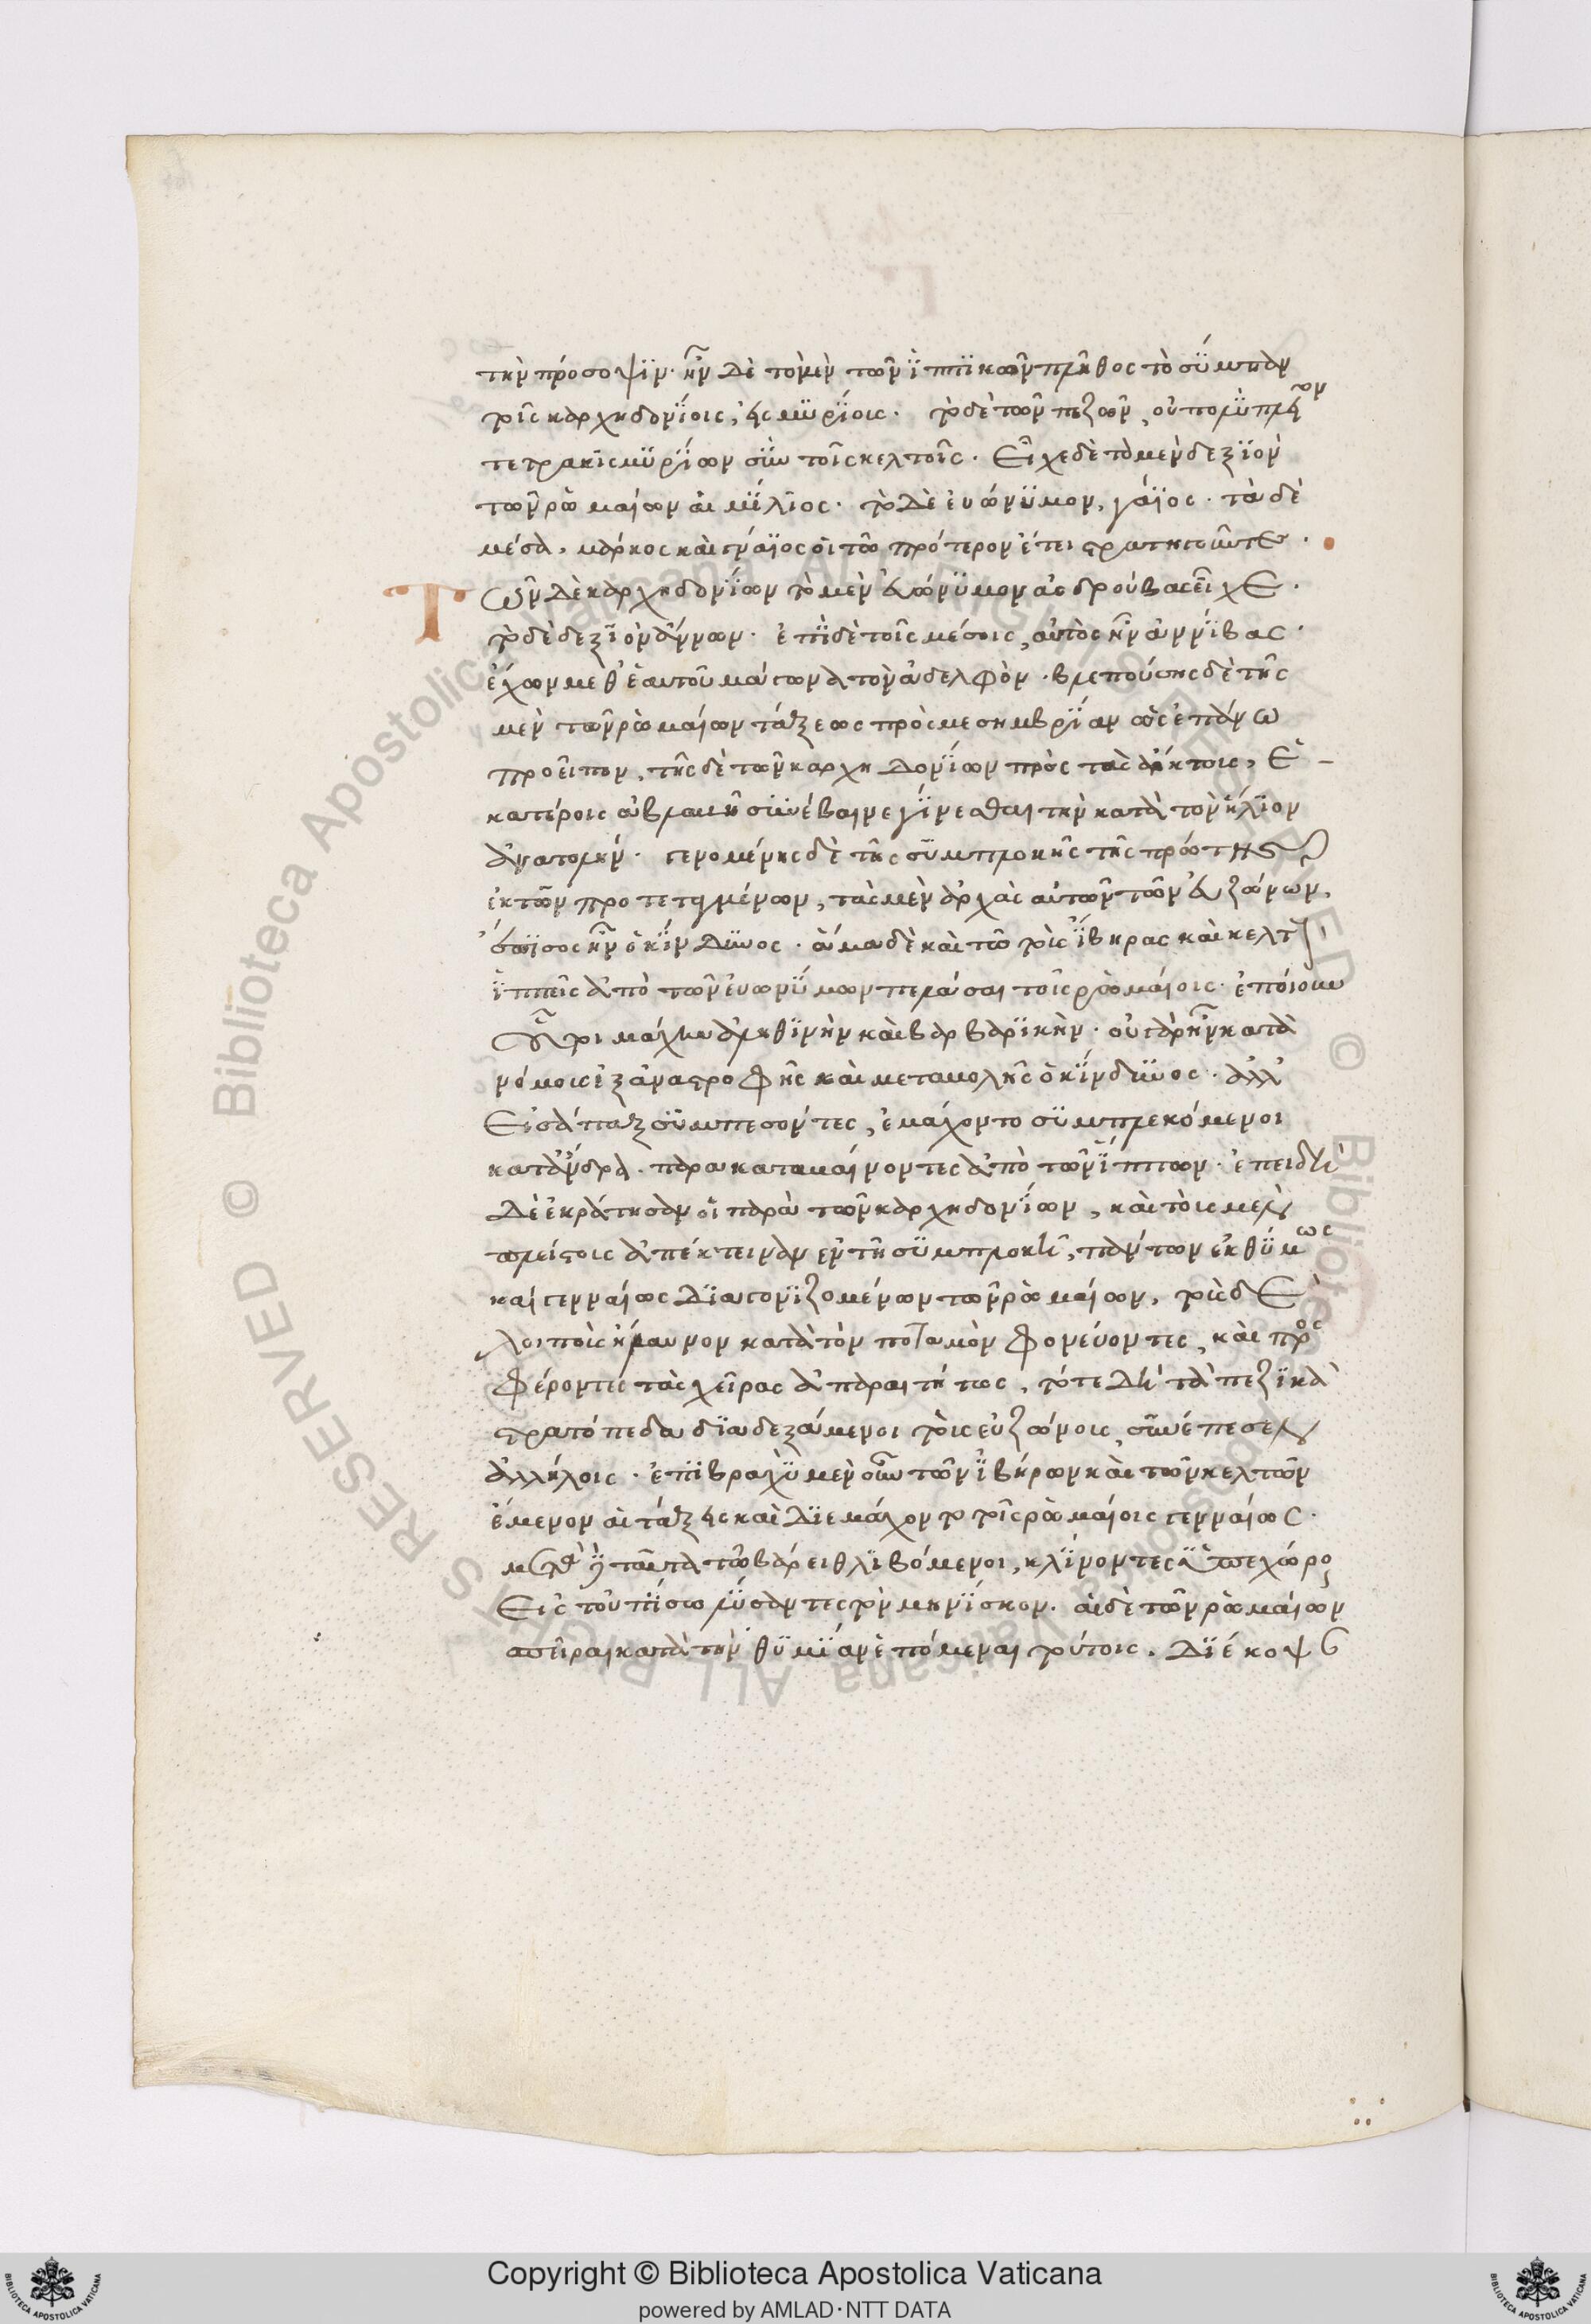 τὴν πρόσοψϊν· ἦν δὲ τὸ μὲν τῶν ἱππϊκῶν πλῆθος τὸ σύμπαν
τοῖς καρχηδονΐοις, εἰς μϋρΐοις· τὸ δὲ τῶν πεζῶν, οὐ πολὺ πλεῖον
τετρακισμϋρΐων σὺν τοῖς κελτοῖς. Εἶχε δὲ τὸ μὲν δεξϊὸν
τῶν ρωμαίων αἰμΐλϊος· τὸ δὲ ευώνϋμον, γάϊος· τὰ δὲ
μέσα, μάρκος καὶ γνάϊος οἱ τῶ πρότερον ἔτει στρατηγοῦντες·
Τῶν δὲ καρχηδονΐων τὸ μὲν ευώνϋμον ἀσδρούβας εἶχε.
τὸ δὲ δεξϊὸν ἄννων· ἐπὶ δὲ τοῖς μέσοις, αὐτὸς ἦν ἀννΐβας·
ἔχων μεθ' ἑαυτοῦ μάγωνα τὸν ἀδελφόν. βλεπούσης δὲ τῆς
μὲν τῶν ρωμαίων τάξεως πρὸς μεσημβρΐαν ὡς ἐπάνω
προεῖπον, τῆς δὲ τῶν καρχηδονΐων πρὸς τὰς ἄρκτοις, Ἑ-
κατέροις ἀβλαβῆ συνέβαινε γΐνεσθαι τὴν κατὰ τὸν ἥλϊον
ἀνατολήν. γενομένης δὲ τῆς σϋμπλοκῆς τῆς πρώτης
ἐκ τῶν προτεταγμένων, τὰς μὲν ἀρχὰς αὐτῶν τῶν εὐζώνων,
ἐπΐσος ἦν ὁ κΐνδϋνος. ἅμα δὲ καὶ τῶ τοὺς ΐβηρας καὶ κελτοὺς
ϊππεῖς ἀπὸ τῶν ευωνϋμων πελάσαι τοῖς ρωμαίοις· ἐποίουν
οὗτοι μάχην ἀληθϊνὴν καὶ βαρβαρϊκήν. οὐ γὰρ ἦν κατὰ
νόμοις ἐξ ἀναστροφῆς καὶ μεταβολῆς ὁ κΐνδϋνος. ἀλλ'
Εἰσάπαξ σϋμπεσόντες, ἐμάχοντο σϋμπλεκόμενοι
κατ' ἄνδρα. παρακαταβαίνοντες ἀπὸ τῶν ΐππων· ἐπειδὴ
δὲ ἐκράτησαν οἱ παρὰ τῶν καρχηδονΐων, καὶ τοὺς μὲν
πλείστοις ἀπέκτειναν ἐν τῆ σϋμπλοκῆ, πάντων ἐκθϋμως
καὶ γενναίως δϊαγονϊζομένων τῶν ρωμαίων, τοὺς δὲ
λοιποὺς ἤλαυνον κατὰ τὸν ποταμὸν φονεύοντες, καὶ προς
φέροντες τὰς χεῖρας ἀπαραιτήτως, τότε δὴ τὰ πεζϊκὰ
στρατόπεδα δϊαδεξάμενοι τοὺς εὐζώνοις, συνέπεσεν
ἀλλήλοις. ἐπὶ βραχὺ μὲν οὖν τῶν ϊβήρων καὶ τῶν κελτῶν
ἔμενον αἱ τάξεις καὶ δϊεμάχοντο τοῖς ρωμαίοις γενναίως.
μετὰ δὲ ταῦτα τῶ βάρει θλϊβόμενοι, κλΐνοντες ὑπεχώρουν
Εἰς τοὐπΐσω λΰσαντες τὸν μηνΐσκον. αἱ δὲ τῶν ρωμαίων
σπεῖραι κατὰ τὴν θϋμΐαν ἑπόμεναι τούτοις. Δϊέκοψαν
Copyright © Biblioteca Apostolica Vaticana
powered by AMLAD·NTT DATA